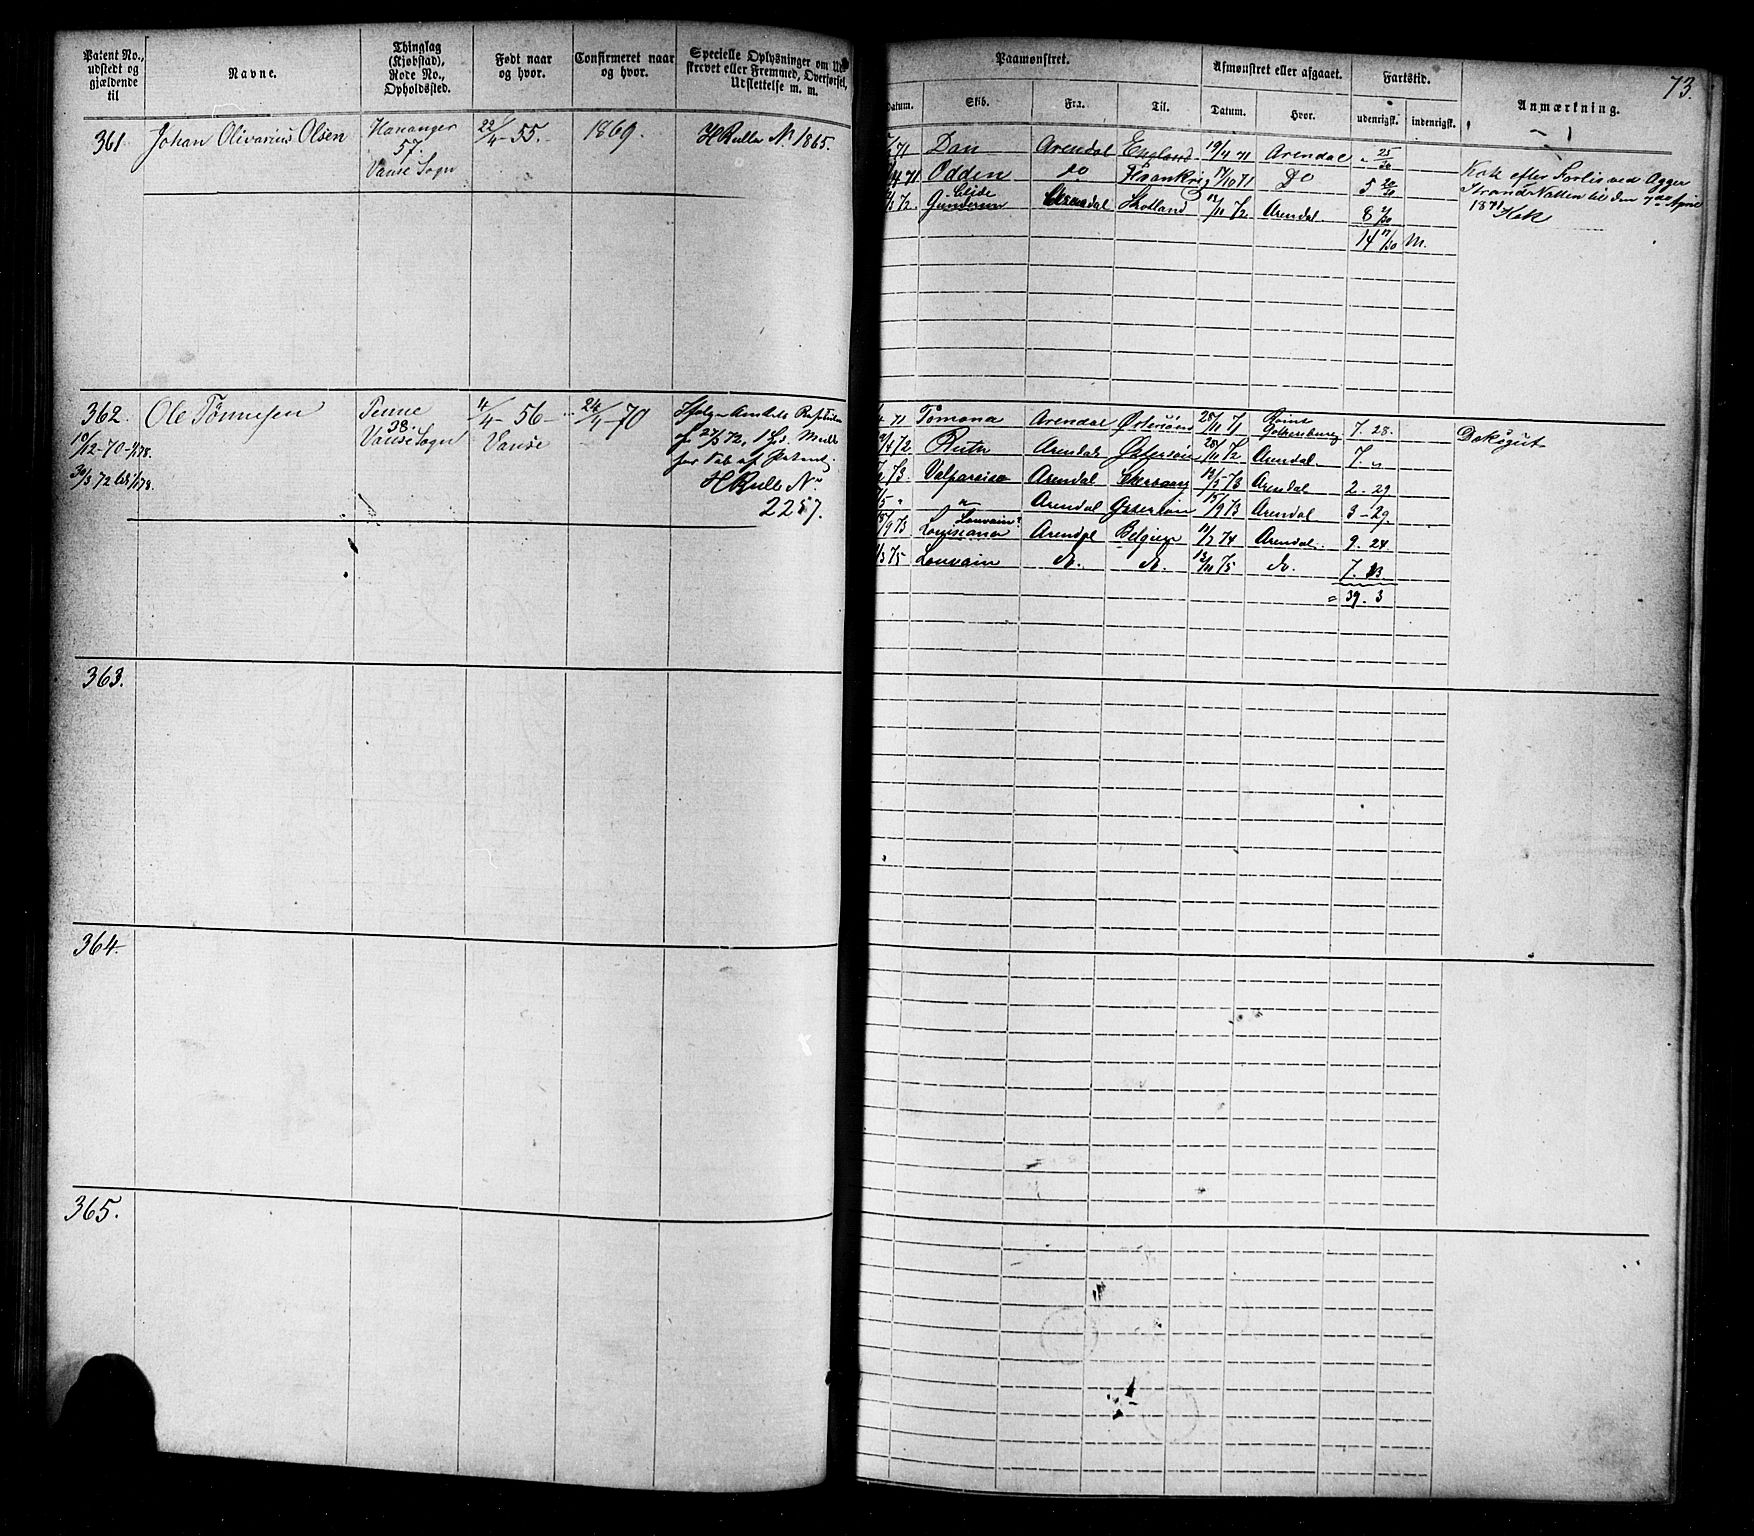 Patent No., udstedt og gjældende til
Navne.
Thinglag (Kjøbstad), Rode No., Opholdssted.
Født naar og hvor.
Confirmeret naar og hvor.
Specielle Oplysninger om
skrevet eller Fremmed, Overførsel,
Udslettelse m. m.
361. Johan Olivarius Olsen
Hananger
57.
Vanse Sogn
22/4 - 55.
1869.
HRulle No 1865.
362. Ole Tönnesen
10/12-70-1/1 78.
30/3 72 til 1/1 78.
Penne
38.
Vanse Sogn
4/4 - 56 -
Vanse
24/4 - 70
for Tab af Patent,
HRulle No
2257.
363.
364.
365.
73.
Paamønstret.
Afmønstret eller afgaaet.
Fartstid.
Anmærkning.
Datum.
Skib.
Fra.
Til.
Datum.
Hvor.
udenrigsk.
indenrigsk.
71 Dan Arendal England 19/4 71 Arendal " 25/30
71 Odden do 17/10 71 Do 5 20/30
72. Gundersen Arendal Holland 72 Arendal 8 2/30
14 17/30 M.
Kok efter Forlis ved Agger
Strand Natten til den 7de April
1871 Kok
71 Pomona Arendal Østersøen 28/11 71 Gothenburg 7. 28.
4 72 Ruth Arendal Østersøen 28/11 72 Arendal 7. "
73. Valparaiso Arendal 73 Arendal 2 - 29
" Arendal Østersøen 15/9 73 Arendal 3 - 29.
Louvain?
9 73 Louisiana Arendal Belgien 11/7 74 Arendal 9. 24
3 75 Louvain do. do. 13/11 75 do. 7. 13
= 39. 3
Doksgut